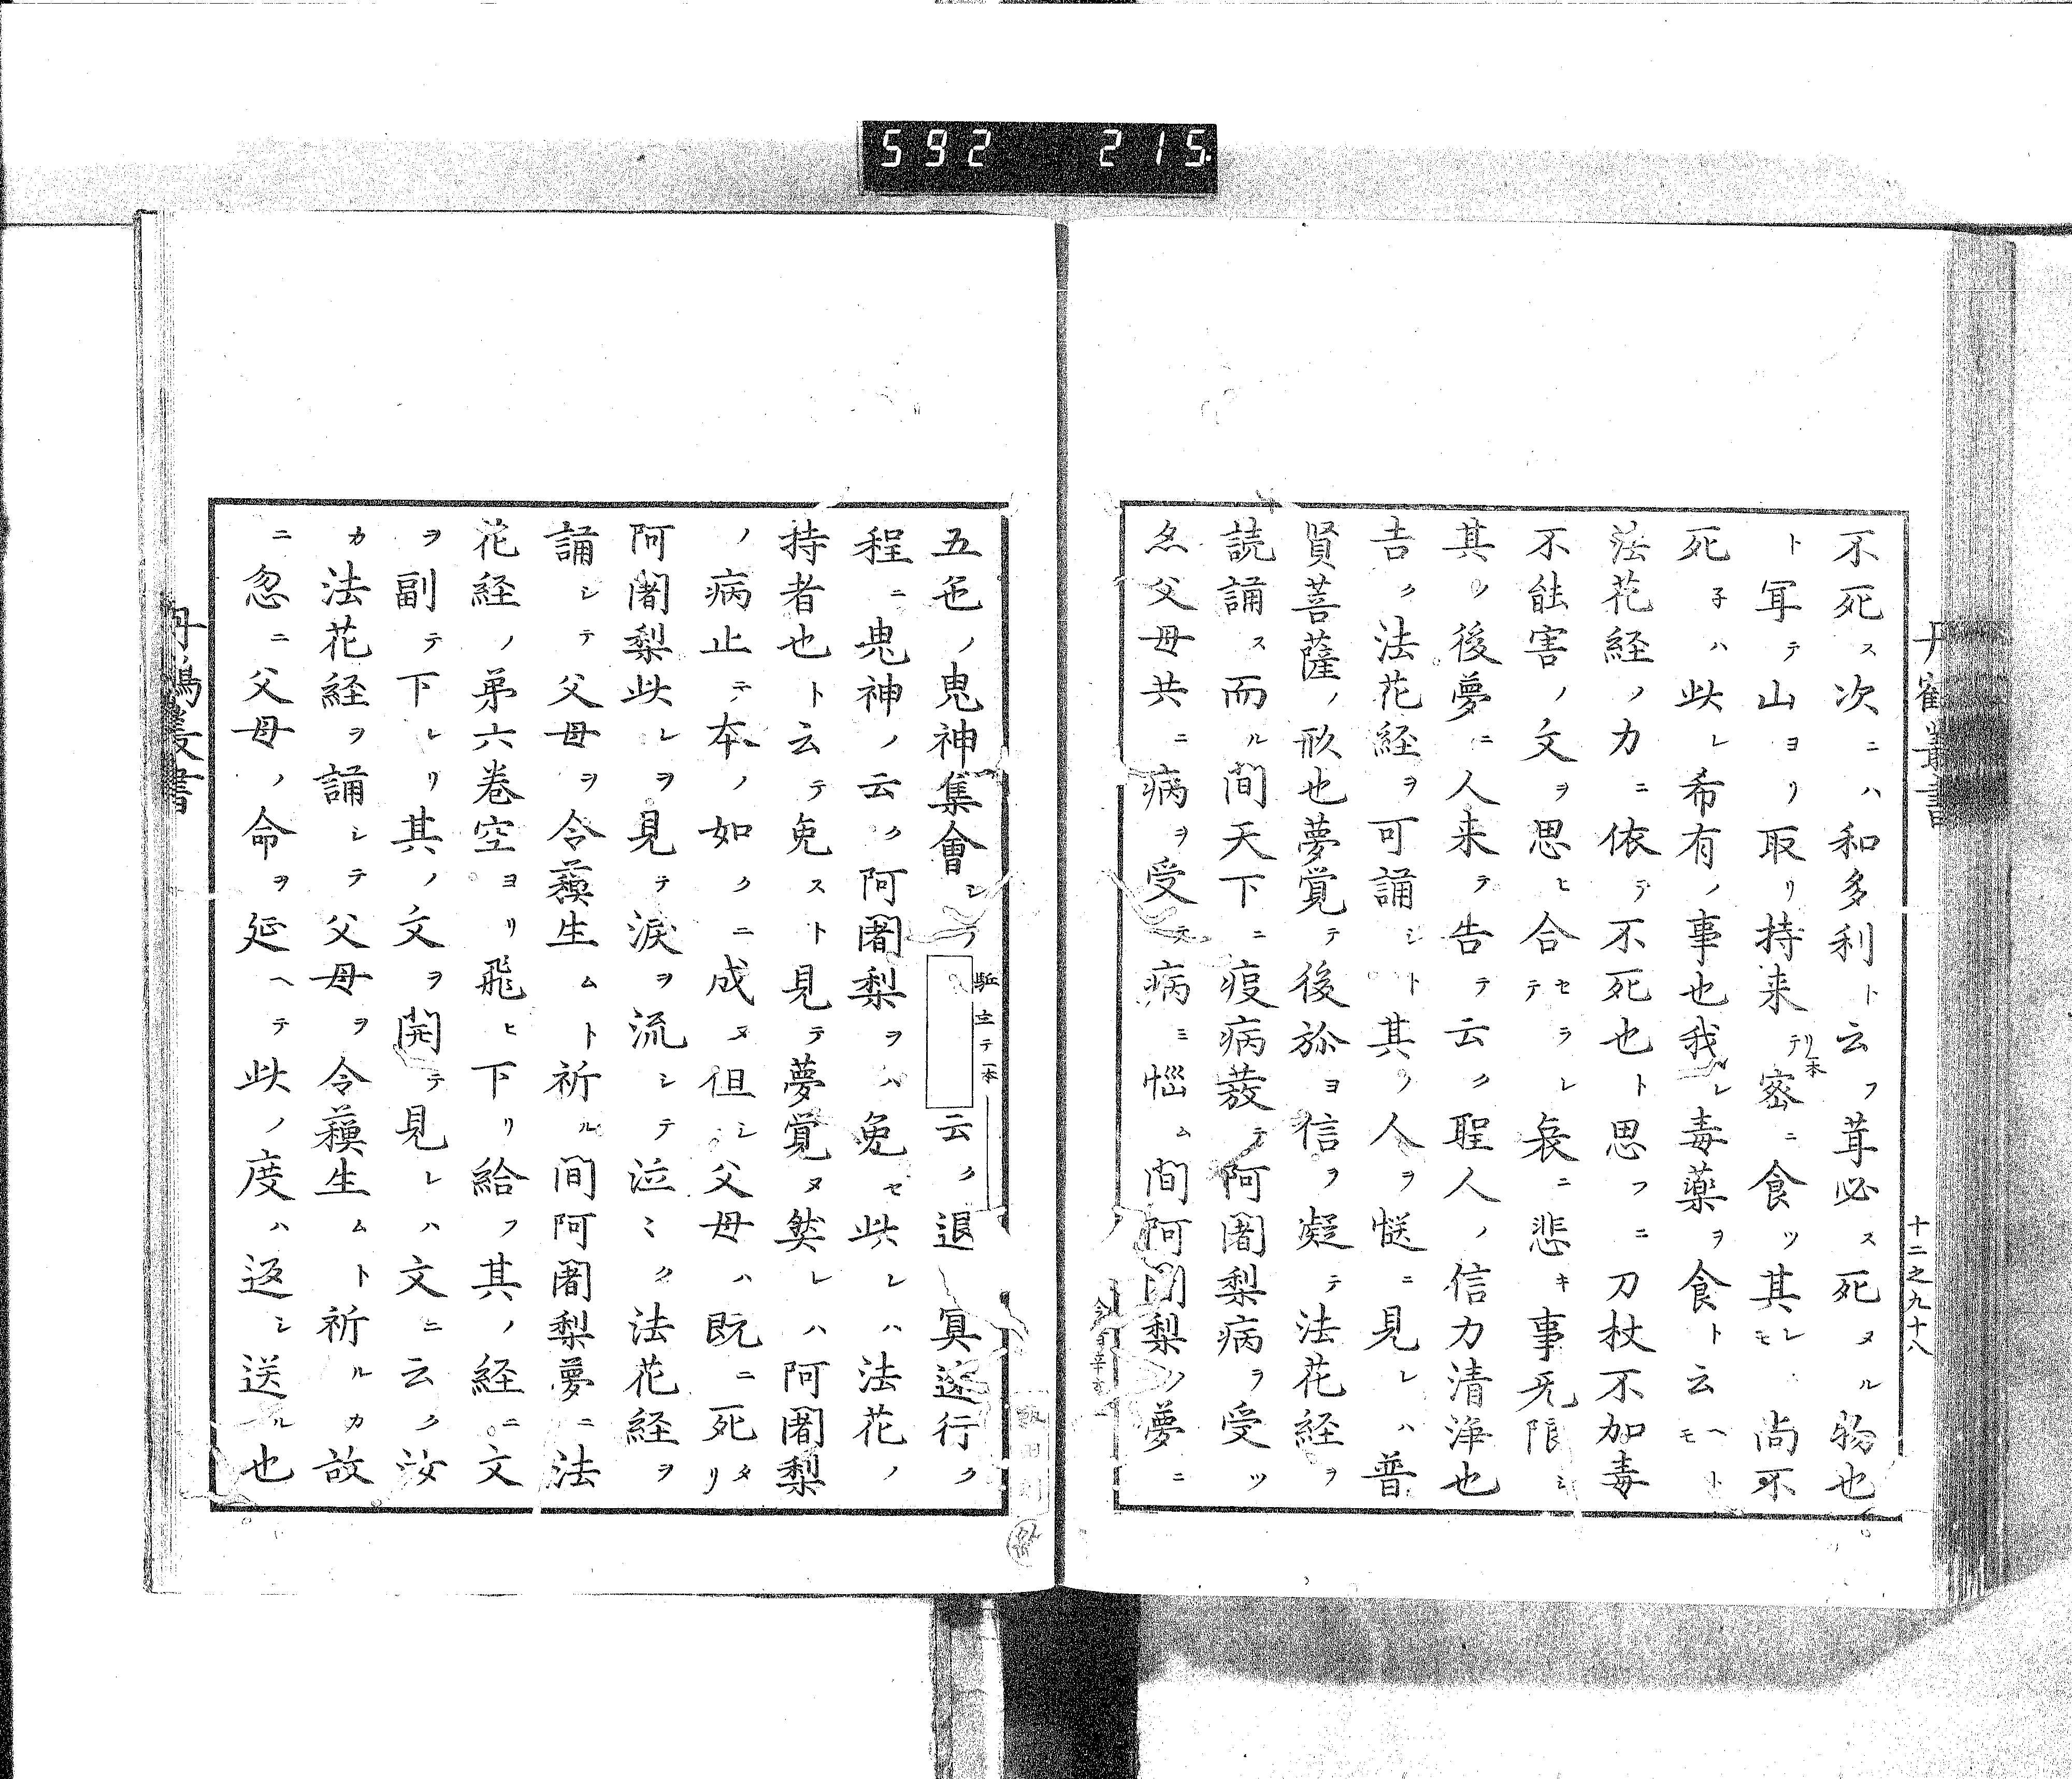 592 215
十二之九十八
不死ス次ニハ和多利ト云フ茸必ス死ヌル物也
ト聞テ山ヨリ取リ持来テ密ニ食ツ其レモ尚不
死子ハ此レ希有ノ事也我レ毒薬ヲ食ト云ヘトモ
法花経ノ力ニ依テ不死也ト思フニ刀杖不加毒
不能害ノ文ヲ思ヒ合セラレテ哀ニ悲キ事无限シ
其ノ後夢ニ人来テ告テ云ク聖人ノ信力清浄也
吉ク法花経ヲ可誦シト其ノ人ヲ慥ニ見レハ普
賢菩薩ノ形也夢覚テ後弥ヨ信ヲ凝テ法花経ヲ
読誦ス而ル間天下ニ疫病發テ阿闍梨病ヲ受ツ
亦父母共ニ病ヲ受テ病ミ悩ム間阿闍梨ノ夢ニ
五色ノ鬼神集會シ
駈立テ一本
云ク退 冥途行ク
程ニ鬼神ノ云ク阿闍梨ヲハ免セ此レハ法花ノ
持者也ト云テ免スト見テ夢覚ヌ然レハ阿闍梨
ノ病止テ本ノ如クニ成ヌ但シ父母ハ既ニ死タリ
阿闍梨此レヲ見テ涙ヲ流シテ泣ミク法花経ヲ
誦シテ父母ヲ令蘓生ムト祈ル間阿闍梨夢ニ法
花経ノ弟六巻空ヨリ飛ヒ下リ給フ其ノ経ニ文
ヲ副テ下レリ其ノ文ヲ開テ見レハ文ニ云ク汝
カ法花経ヲ誦シテ父母ヲ令蘓生ムト祈ルカ故
ニ忽ニ父母ノ命ヲ延ヘテ此ノ度ハ返シ送ル也
丹鶴叢書